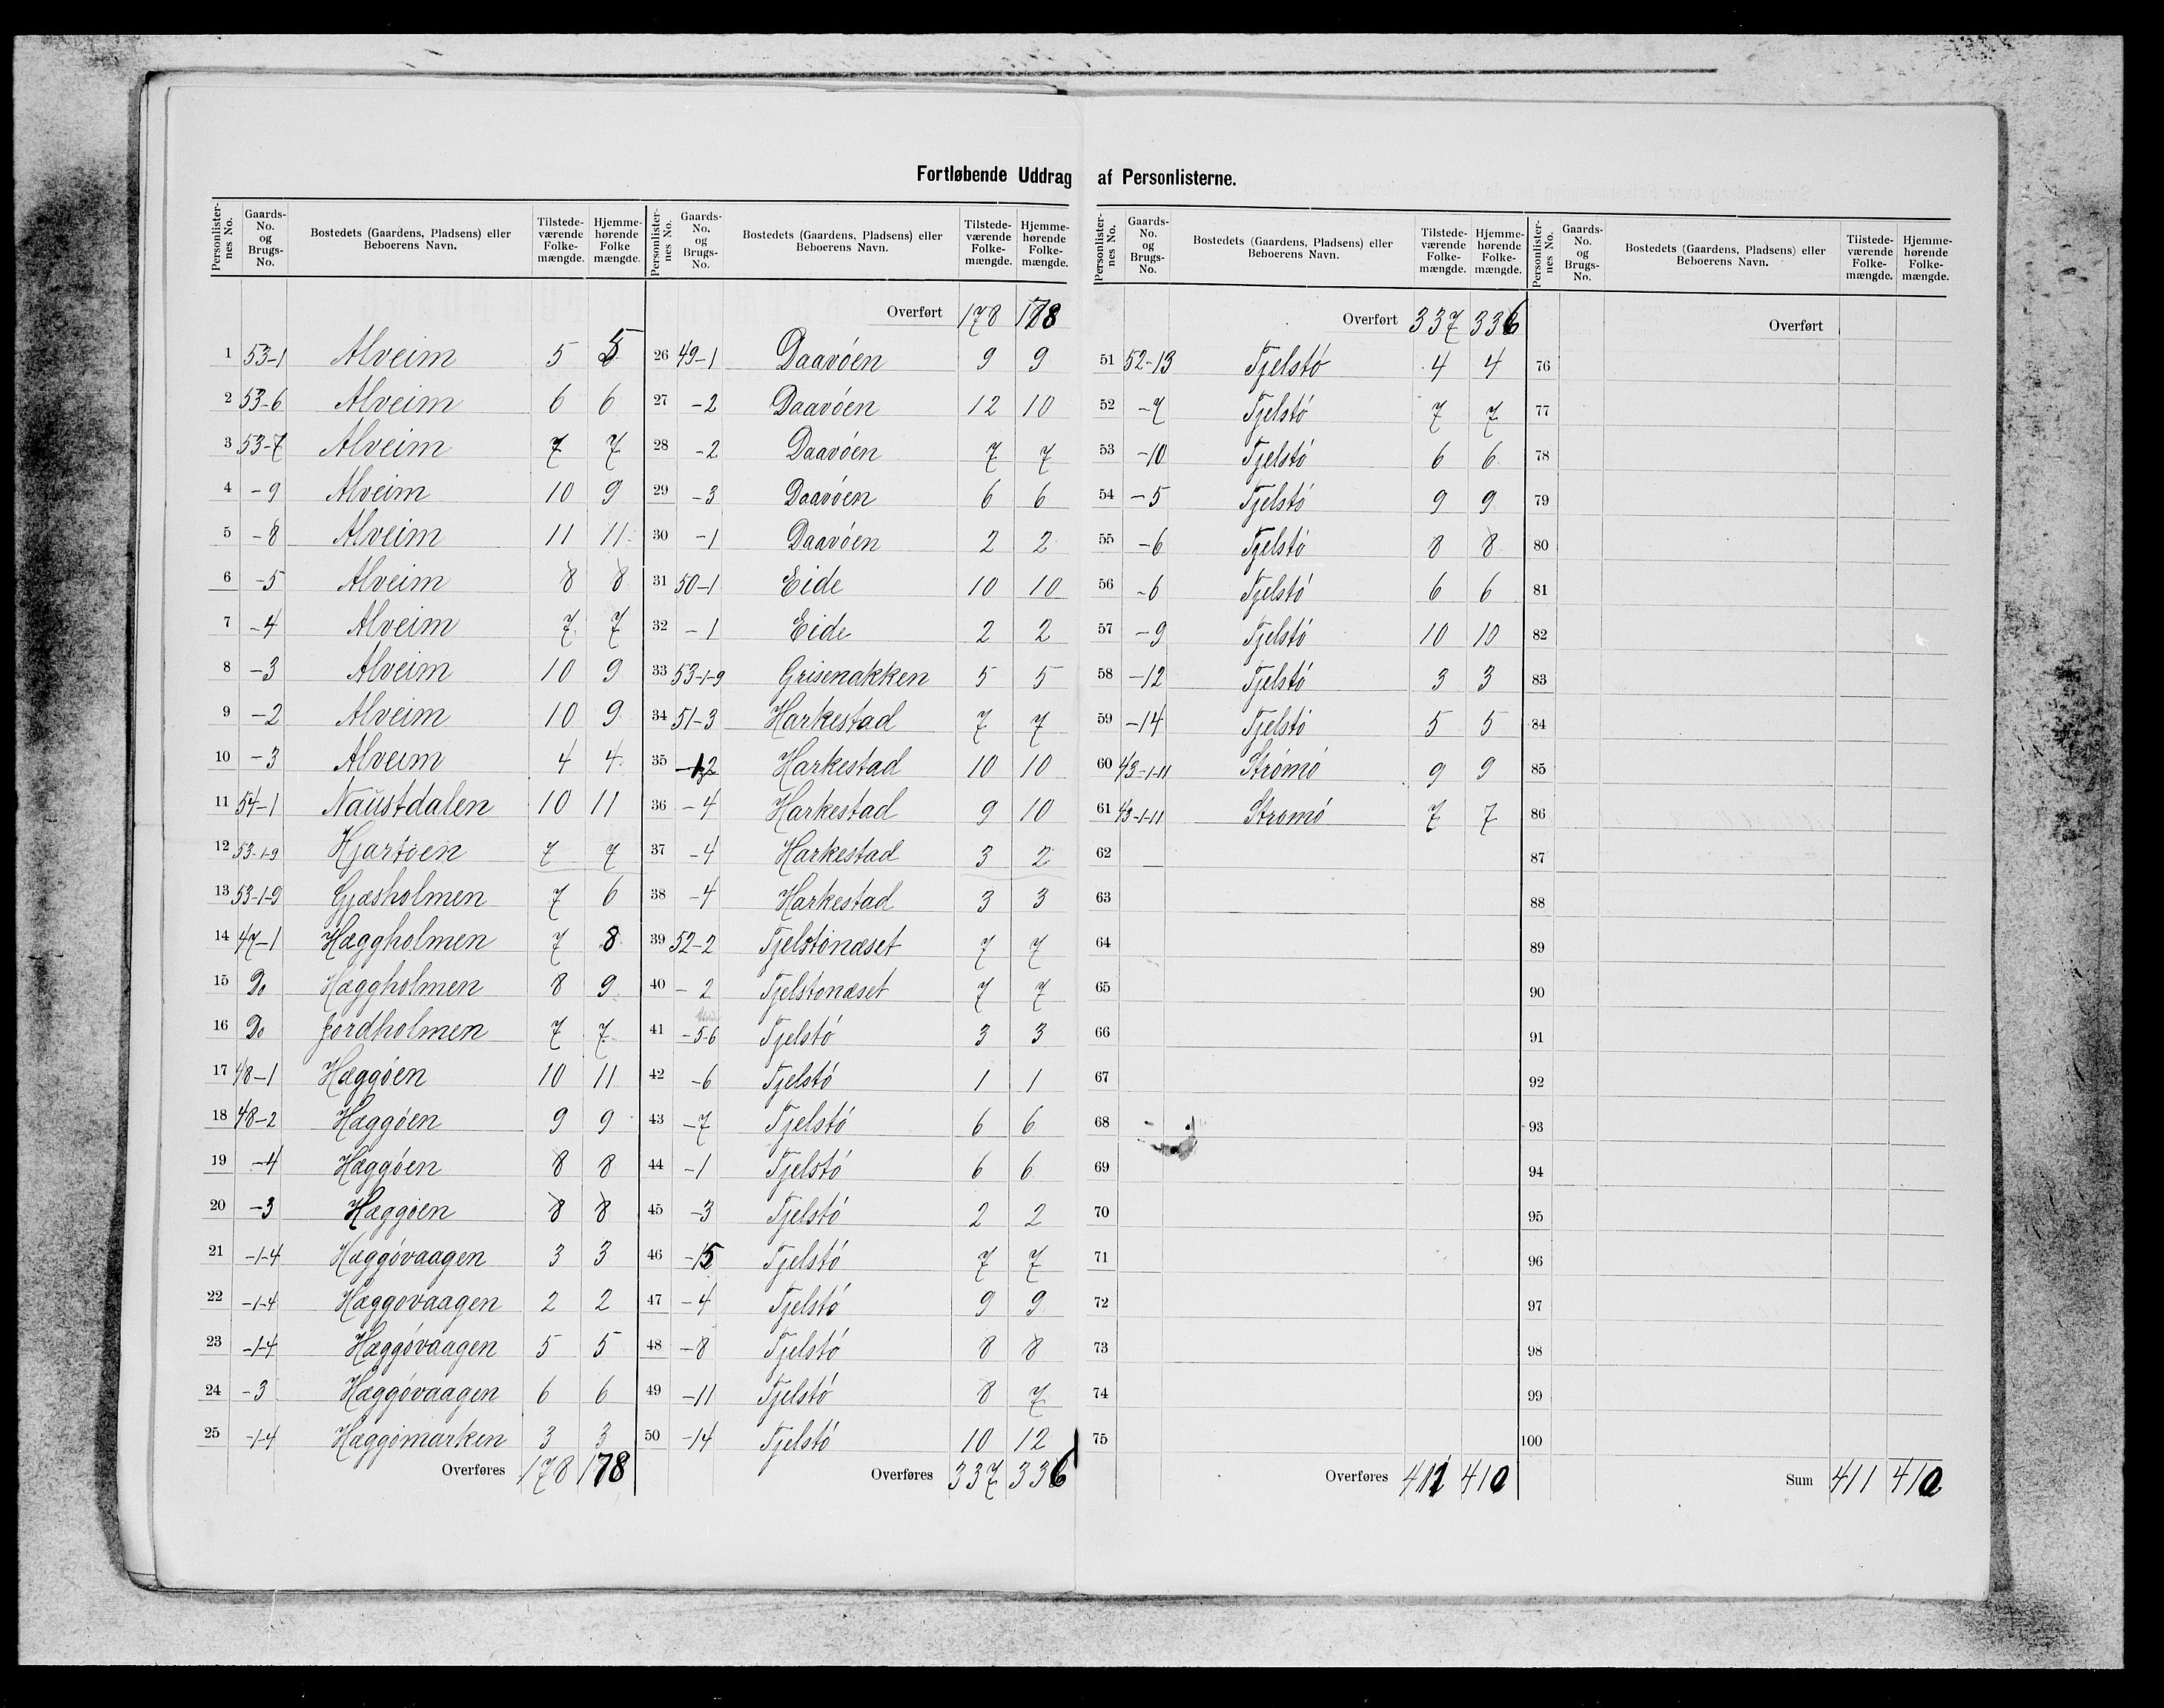 Fortløbende Uddrag af Personlisterne.
Personlisternes No. Gaards-No. og Brugs-No. Bostedets (Gaardens, Pladsens) eller Beboerens Navn. Tilstedeværende Folkemængde. Hjemmehørende Folkemængde.
1 53-1 Alveim 5 5
2 53-6 Alveim 6 6
3 53-7 Alveim 7 7
4 -9 Alveim 10 9
5 -8 Alveim 11 11
6 -5 Alveim 8 8
7 -4 Alveim 7 7
8 -3 Alveim 10 9
9 -2 Alveim 10 9
10 -3 Alveim 4 4
11 54-1 Naustdalen 10 11
12 53-1-9 Hjartøen 7 7
13 53-1-9 Gjæsholmen 7 6
14 47-1 Hæggholmen 7 8
15 Do Hæggholmen 8 9
16 Do Jordholmen 7 7
17 48-1 Hæggøen 10 11
18 48-2 Hæggøen 9 9
19 -4 Hæggøen 8 8
20 -3 Hæggøen 8 8
21 -1-4 Hæggøvaagen 3 3
22 -1-4 Hæggøvaagen 2 2
23 -1-4 Hæggøvaagen 5 5
24 -3 Hæggøvaagen 6 6
25 -1-4 Hæggømarken 3 3
Overføres 178 178
Personlisternes No. Gaards-No. og Brugs-No. Bostedets (Gaardens, Pladsens) eller Beboerens Navn. Tilstedeværende Folkemængde. Hjemmehørende Folkemængde.
Overført 178 178
26 49-1 Daavøen 9 9
27 -2 Daavøen 12 10
28 -2 Daavøen 7 7
29 -3 Daavøen 6 6
30 -1 Daavøen 2 2
31 50-1 Eide 10 10
32 -1 Eide 2 2
33 53-1-9 Grisenakken 5 5
34 51-3 Harkestad 7 7
35 Harkestad 10 10
36 -4 Harkestad 9 10
37 -4 Harkestad 3 2
38 -4 Harkestad 3 3
39 52-2 Tjelstønæset 7 7
40 -2 Tjelstønæset 7 7
41 -5-6 Tjelstø 3 3
42 -6 Tjelstø 1 1
43 -7 Tjelstø 6 6
44 -1 Tjelstø 6 6
45 -3 Tjelstø 2 2
46 -15 Tjelstø 7 7
47 -4 Tjelstø 9 9
48 -8 Tjelstø 8 8
49 -11 Tjelstø 8 7
50 -14 Tjelstø 10 12
Overføres 337 336
Personlisternes No. Gaards-No. og Brugs-No. Bostedets (Gaardens, Pladsens) eller Beboerens Navn. Tilstedeværende Folkemængde. Hjemmehørende Folkemængde.
Overført 337 336
51 52-13 Tjelstø 4 4
52 -7 Tjelstø 7 7
53 -10 Tjelstø 6 6
54 -5 Tjelstø 9 9
55 -6 Tjelstø 8 8
56 -6 Tjelstø 6 6
57 -9 Tjelstø 10 10
58 -12 Tjelstø 3 3
59 -14 Tjelstø 5 5
60 43-1-11 Strømø 9 9
61 43-1-11 Strømø 7 7
62
63
64
65
66
67
68
69
70
71
72
73
74
75
Overføres 411 410
Personlisternes No. Gaards-No. og Brugs-No. Bostedets (Gaardens, Pladsens) eller Beboerens Navn. Tilstedeværende Folkemængde. Hjemmehørende Folkemængde.
Overført
76
77
78
79
80
81
82
83
84
85
86
87
88
89
90
91
92
93
94
95
96
97
98
99
100
Sum 411 410